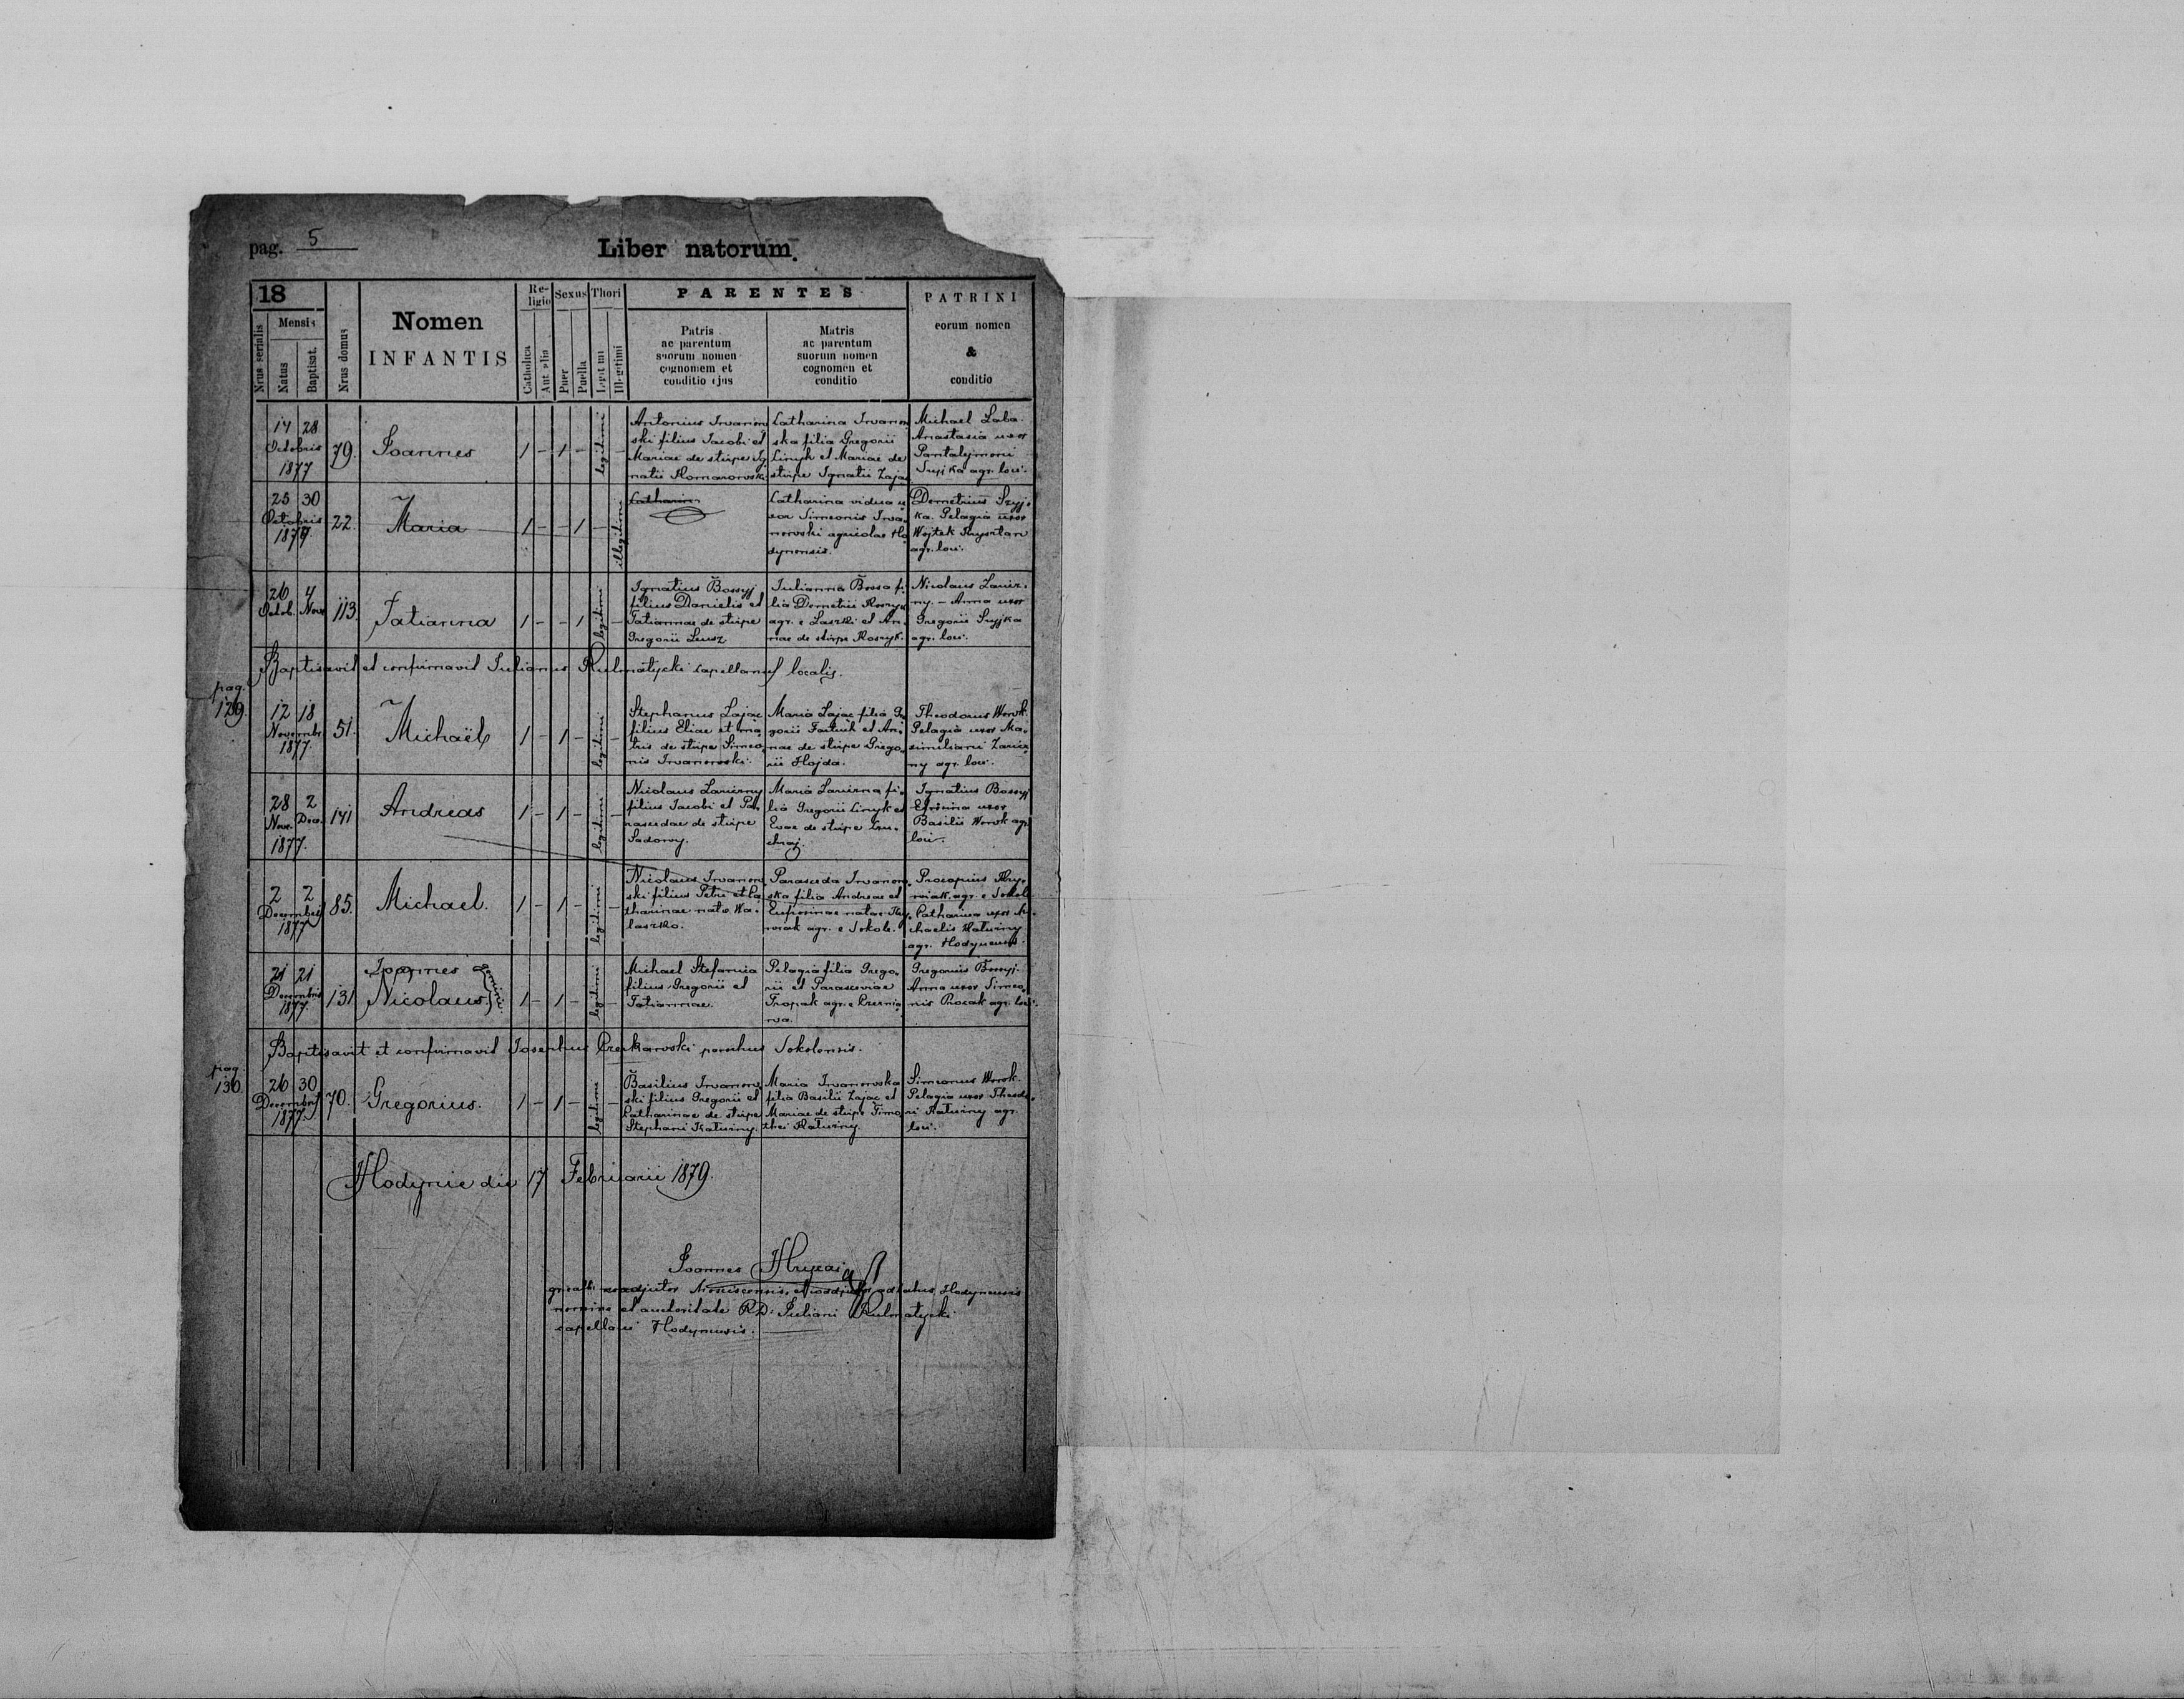 pag. 5
Liber natorum.
18
Nrus serialis
Mensis
Natus
Baptisat.
Nrus domus
Nomen
INFANTIS
Religio
Catholica
Aut alia
Sexus
Puer
Puella
Thori
Legitimi
Illegitimi
PARENTES
Patris
ac parentum
suorum nomen
cognomem et
conditio ejus
Matris
ac parentum
suorum nomen
cognomen et
conditio
PATRINI
eorum nomen
&
conditio
14 28
Octobris
1877
79.
Joannes
1 - 1 - legitimi -
Antonius Iwanow
ski filius Jacobi et
Mariae de stirpe Ig
natii Komarowski
Catharina Iwanow
ska filia Gregorii
Linyk et Mariae de
stirpe Ignatii Zajac
Michael Laba.
Anastasia uxor
Pantalymoni
Szyjka agr. loci.
25 30
Octobris
1877.
22.
Maria
1 - - 1 - illegitimi
Catharin
Catharina vidua u
xor Simeonis Iwa-
nowski agricolae Ho
dynensis.
Demetrius Szyj-
ka. Pelagia uxor
Wojtek
agr. loci.
26 4
Octob. Nov.
113.
Tatianna
1 - - 1 legitimi -
Ignatius Bossyj
filius Danielis et
Tatiannae de stirpe
Gregorii Leusz
Iulianna Bossa fi-
lia Demetrii
agr. e Laszki et An-
nae de stirpe
Nicolaus Lawir-
ny. - Anna uxor
Gregorii Szyjka
agr. loci.
Baptisavit et confirmavit Julianus Kulmatycki capellanus localis.
pag.
129.
12 18
Novembr.
1877.
51.
Michaël
1 - 1 - legitimi -
Stephanus Zajac
filius Eliae et ma
tris de stirpe Simeo
nis Iwanowski.
Maria Zajac filia Gre
gorii et An-
nae de stirpe Grego-
rii Hojda.
Theodorus Worok
Pelagia uxor Ma-
ximiliani
ny agr. loci.
28 2
Nov. Dec.
1877.
141
Andreas
1 - 1 - legitimi -
Nicolaus Lawirny
filius Jacobi et Pa-
rascedae de stirpe
Sadowy.
Maria Lawirna fi-
lia Gregorii Linyk et
Evae de stirpe
Ignatius Bossyj
uxor
Basilii Worok agr.
loci.
2 2
Decembris
1877
85.
Michael.
1 - 1 - legitimi -
Nicolaus Iwanow
ski filius Petri et Ca
tharinae nata Wa-
laszko.
Parasceda Iwanow
ska filia Andreae et
Eufrosinae natae
agr. e Sokole.
Procopius
agr. e Sokole
Catharina uxor Mi-
chaelis Katuriny
agr. Hodynensis.
21 21
Decembris
1877.
131
Joannes
Nicolaus gemini
1 - 1 - legitimi -
Michael Stefanica
filius Gregorii et
Tatiannae.
Pelagia filia Grego-
rii et Parasceviae
Tropak agr. e
wa.
Gregorius Bossyj.
Anna uxor Simeo-
nis agr. loci.
Baptisavit et confirmavit Josephus parochus Sokolensis.
pag.
130.
26 30
Decembris
1877.
70.
Gregorius.
1 - 1 - legitimi -
Basilius Iwanow
ski filius Gregorii et
Catharinae de stirpe
Stephani Katuriny.
Maria Iwanowska
filia Basilii Zajac et
Mariae de stirpe Timo
thei Katuriny.
Simeonus Worok.
Pelagia uxor Theodo-
ri Katuriny agr.
loci.
Hodynie die 17 Februarii 1879.
Joannes
coadjutor Hodynensis
nomine et auctoritate RD: Juliani Kulmatycki
capellani Hodynensis.